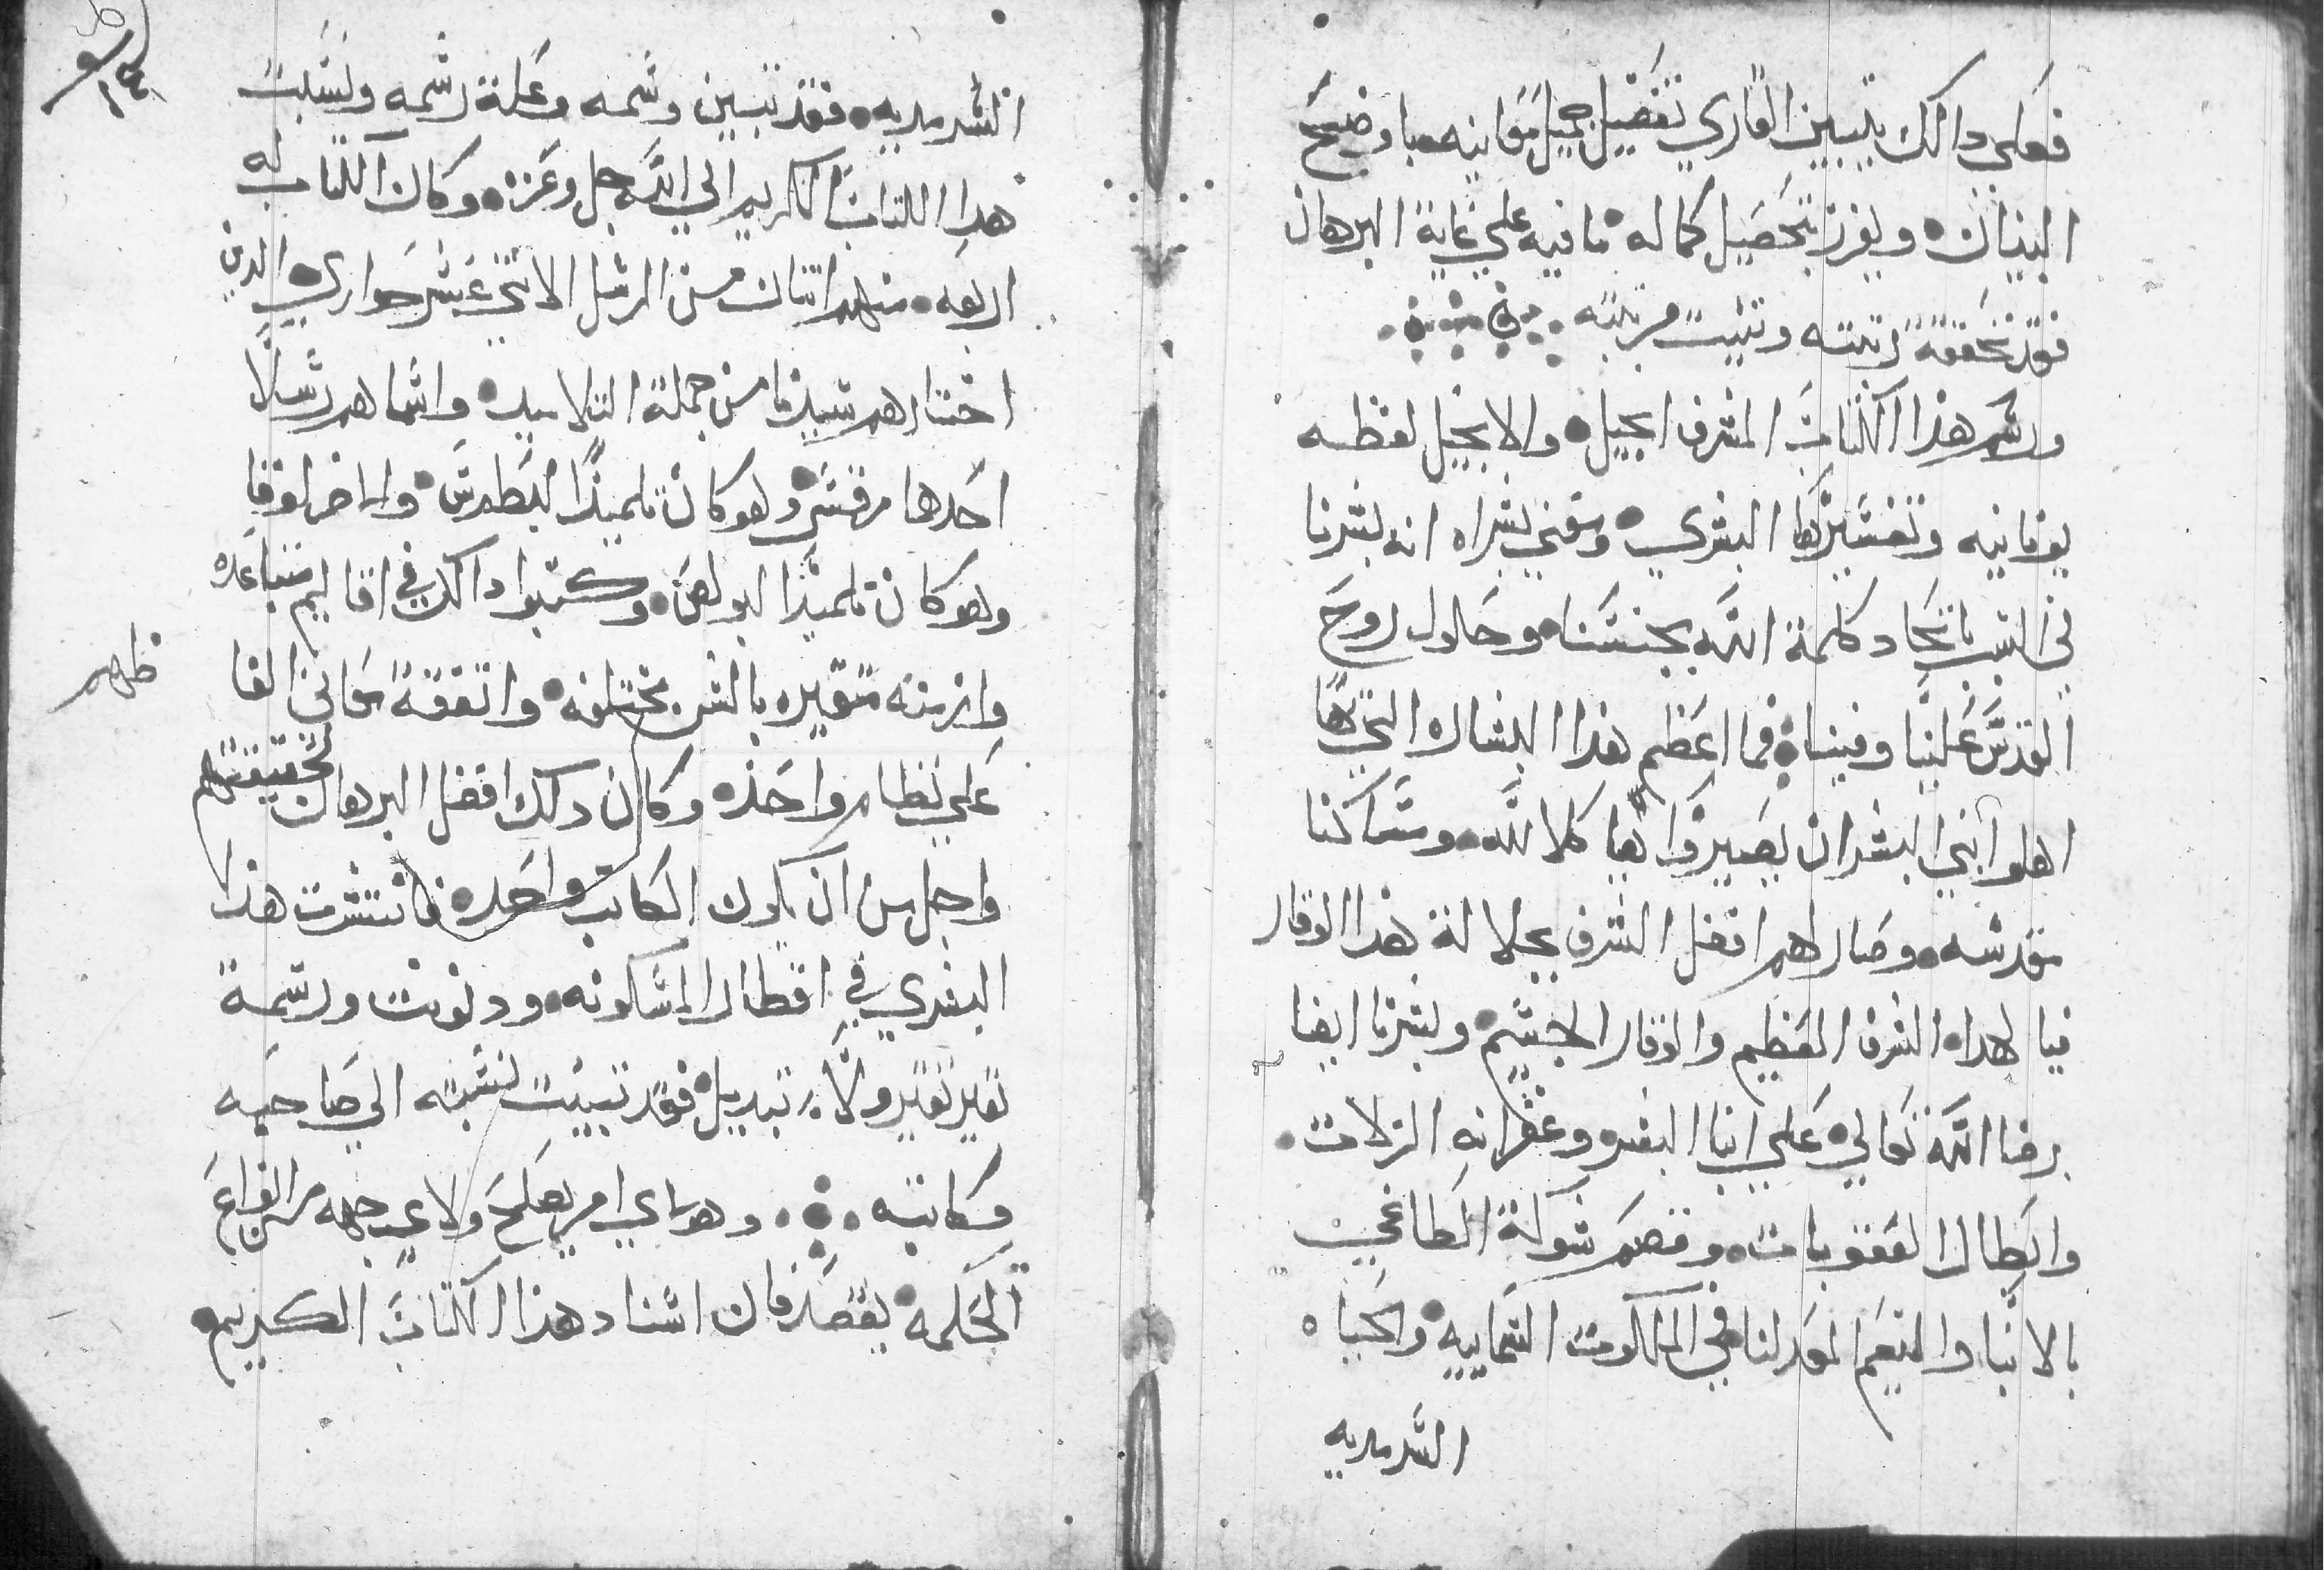 فعلي دالك يتبين القاري تفضيل جميل معانيه باوضح
البنيان ويفرز بتحصيل كماله ما فيه علي غاية البرهان
فقد تحققة رتبته وتثبت مرتبته
ورسم هذا الكتاب المشرف انجيل والانجيل لفظه
يونانيه وتفسيرها البشري ومعني بشراه انه بشرنا
في الب باتحاد كلمة الله بجنسنا وحلول روح
القدس علينا وفينا فما اعظم هذا البشاره التي بها
اهلوا بني البشر ان يصيروا بها كلالله ومساكنا
مقدسه وصار لهم افضل الشرف بجلالة هذا الوقار
فيا لهداه الشرف العظيم والوقار الجسيم وبشرنا ايضا
برضا الله تعالي علي ابنا البشر وغفرانه الزلات
وابطال العقوبات وقصم شوكة الطاغي
بالابنا والنعيم لمعد لنا في الملكوت السماييه والحياه
السرمديه
السرمديه فقد تبين وسمه وعلة رسمه ونسبت
هدا الكتاب الكريم الي الله جل وعزه وكان الكتاب له
اربعه منهم اتنان من الرسل الاتني عشر حواري الدين
اختارهم سيدنا من جملة التلاميد واسماهم رسلا
احدها مرقس وهو كان تلميذا لبطرس والاخر لوقا
وهو كان تلميذا لبولص وكتبوا دالك في اقاليم متباعده
وازمنه متغيره بالسن مختلفه واتفقة معاني الفا
ظهم
علي نظام واحده وكان دلك افضل البرهان تحقيقتهم
واجل من ان يكون الكاتب واحده فانتشرت هذا
البشري في اقطار المسكونه ودونت ورسمة
بغير تغير ولا تبديل فقد تبينت نسبته الي صاحبه
وكاتبه وهو باي امر يصلح ولاي جهه من انواع
الحكمه يقصد فان اسناد هذا الكتاب الكريم